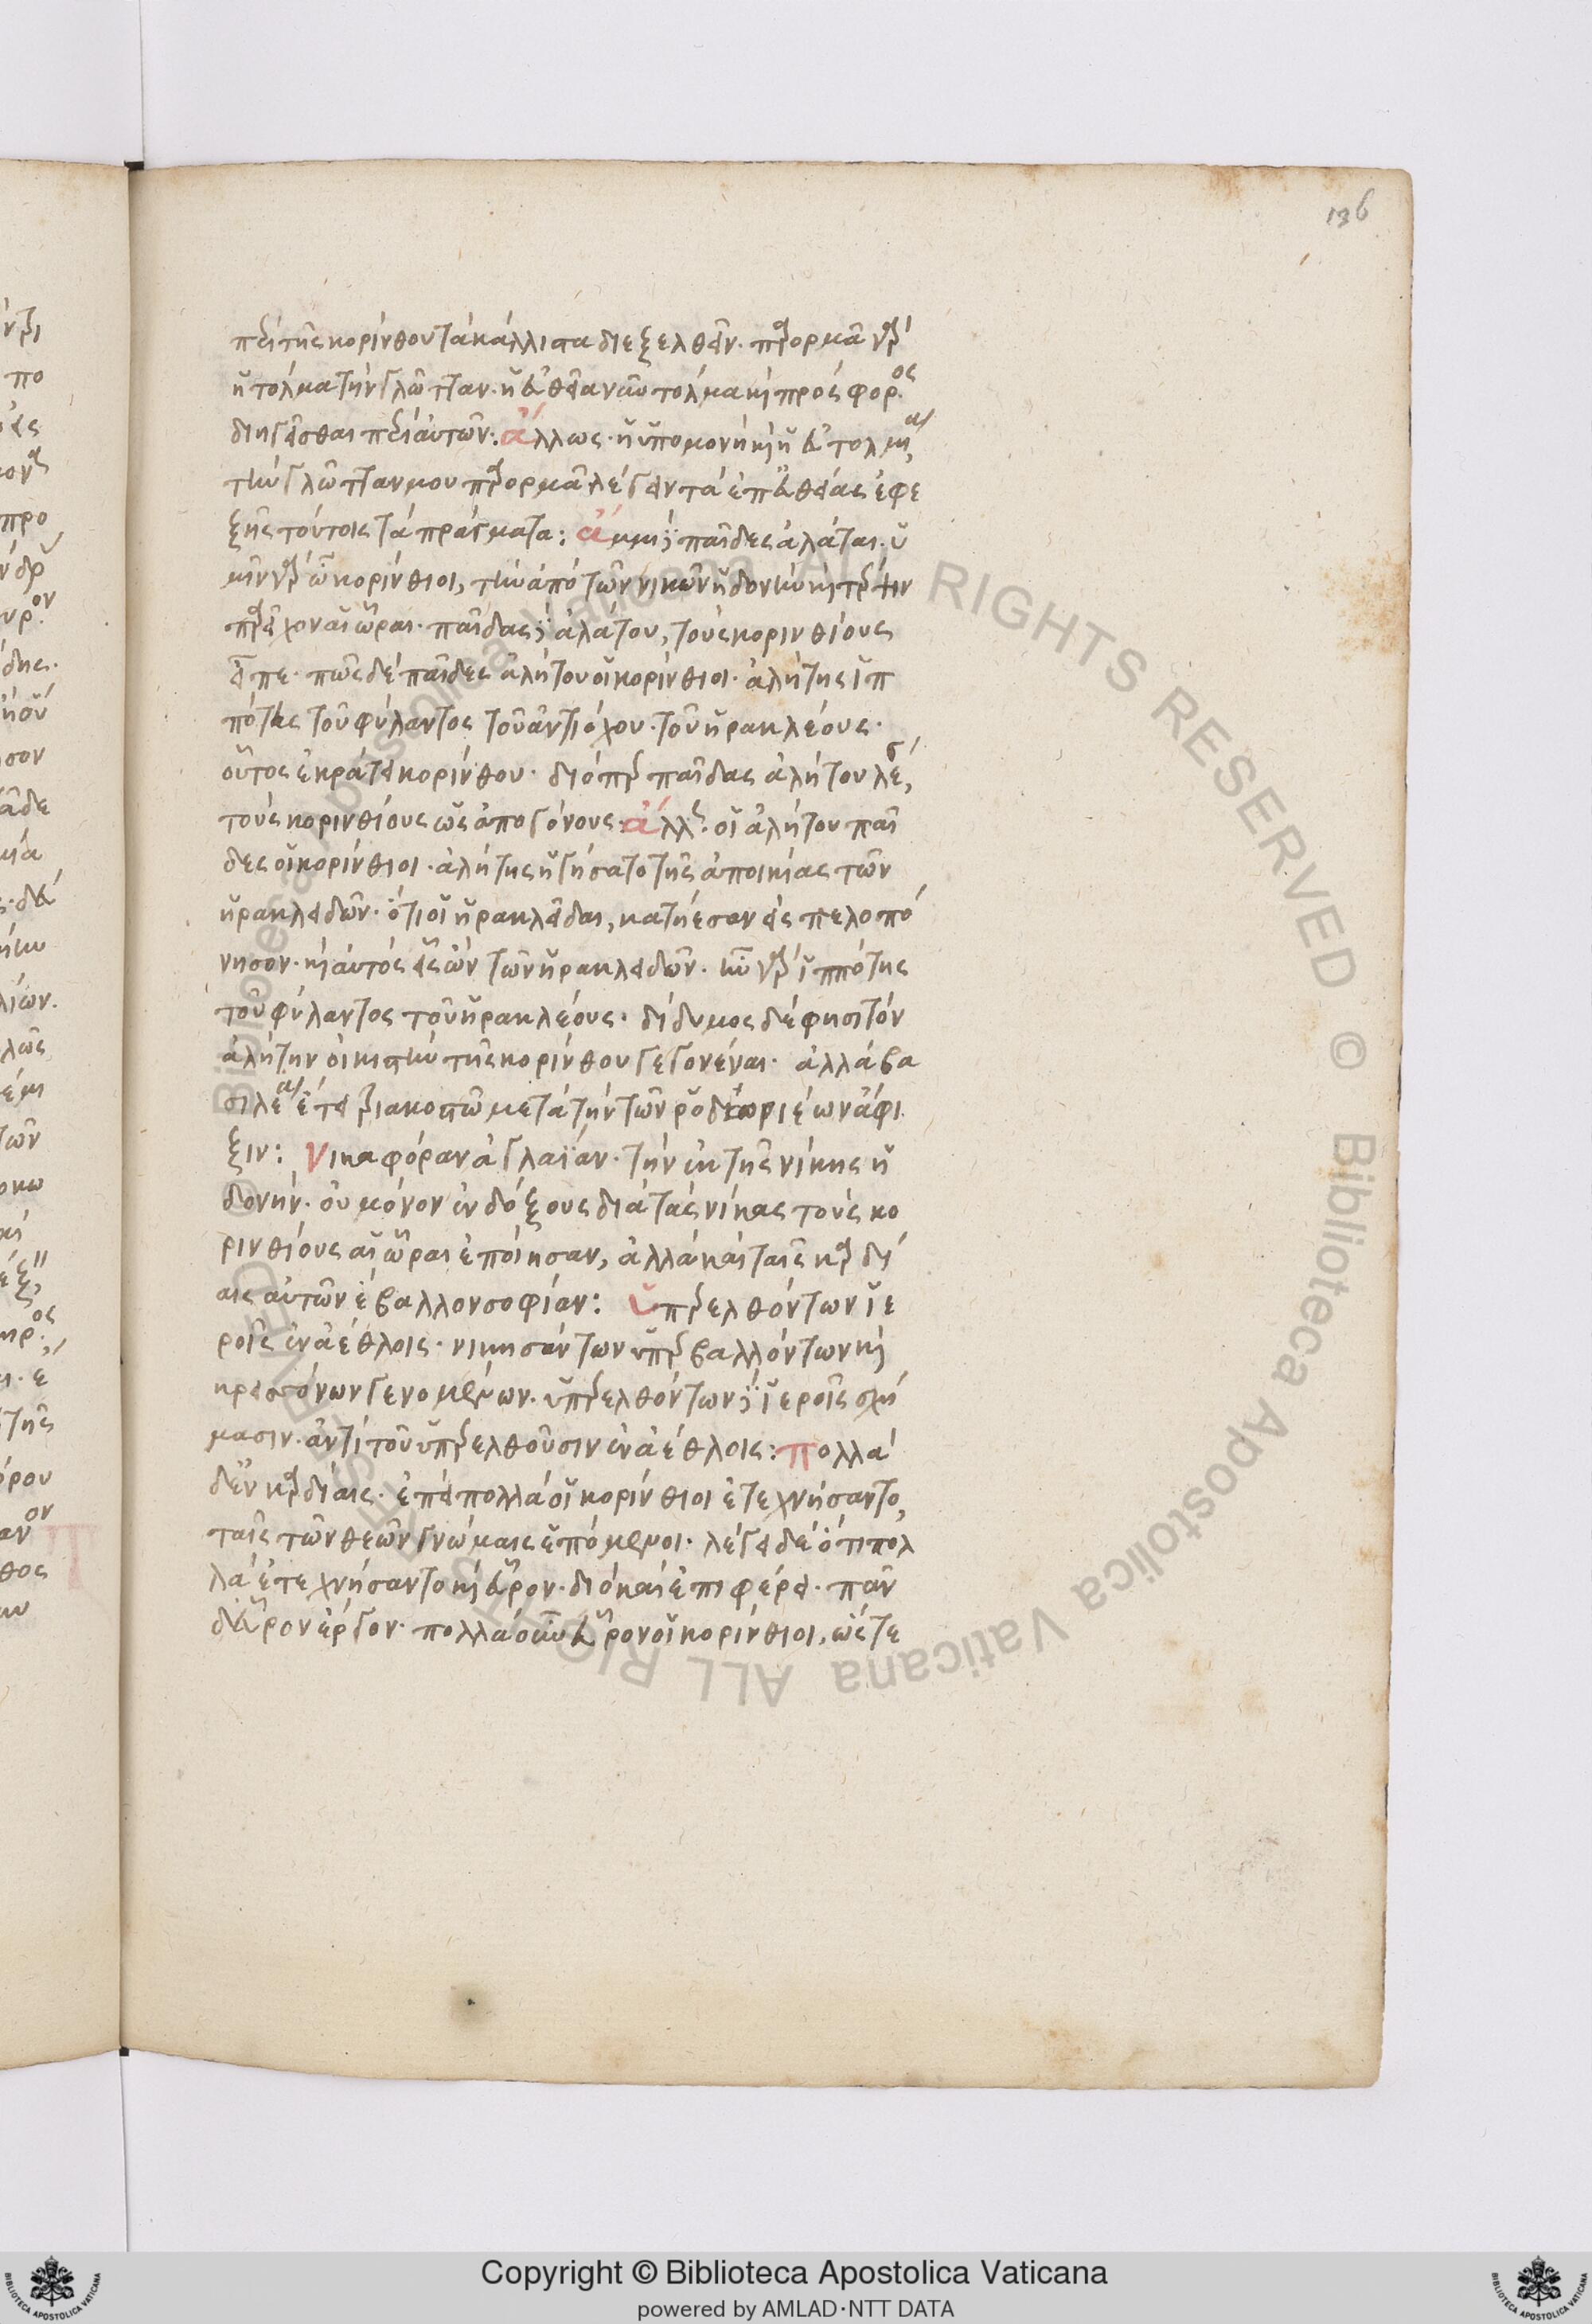 136
περὶ τῆς κορίνθου τὰ κάλλιστα διεξελθεῖν· παρορμᾶ γὰρ
ἡ τόλμα τὴν γλῶτταν· ἡ εὐθεῖα νῦν τόλμα καὶ πρόσφορος
διηγεῖσθαι περὶ αὐτῶν: ἄλλως· ἡ ὑπομονὴ καὶ ἡ εὐτολμία
τὴν γλῶτταν μου παρορμᾶ λέγειν τὰ ἐπ' εὐθείας ἐφε
ξῆς τούτοις τὰ πράγματα: ἄμμι δὲ παῖδες ἀλάτα· ὑ
μῖν γὰρ ὦ κορίνθιοι, τὴν ἀπὸ τῶν νικῶν ἡδονὴν καὶ τέρψιν
παρέχον αἱ ὧραι· παῖδας δὲ ἀλάτου, τοὺς κορινθίους
εἶπε· πῶς δὲ παῖδες ἀλήτου οἱ κορίνθιοι· ἀλήτης ἱπ
πότης τοῦ φύλαντος τοῦ ἀντιόχου· τοῦ ἡρακλέους·
οὗτος ἐκράτει κορίνθου· διόπερ παῖδας ἀλήτου λέγει,
τοὺς κορινθίους ὡς ἀπογόνους· ἄλλως· οἱ ἀλήτου παῖ
δες οἱ κορίνθιοι· ἀλήτης ἡγήσατο τῆς ἀποικίας τῶν
ἡρακλειδῶν· ὅτι οἱ ἡρακλεῖδαι, κατήεσαν εἰς πελοπό
νησον· καὶ αὐτὸς εἷς ὢν τῶν ἡρακλειδῶν· ἦν γὰρ ἱππότης
τοῦ φύλαντος τοῦ ἡρακλέους· δίδυμος δέ φησι τὸν
ἀλήτην οἰκιστὴν τῆς κορίνθου γεγονέναι· ἀλλὰ βα
σιλέα ἔτει τριακοστῶ μετὰ τὴν τῶν δωριέων ἄφι
ξιν: νικαφόραν ἀγλαΐαν· τὴν ἐκ τῆς νίκης ἡ
δονήν· οὐ μόνον ἐνδόξους διὰ τὰς νίκας τοὺς κο
ρινθίους αἱ ὧραι ἐποίησαν, ἀλλὰ καὶ ταῖς καρδί
αις αὐτῶν ἔβαλλον σοφίαν: ὑπερελθόντων ἱε
ροῖς ἐν ἀέθλοις· νικησάντων ὑπερβαλλόντων καὶ
κρεισσόνων γενομένων· ὑπερελθόντων δὲ ἱεροῖς σχή
μασιν· ἀντὶ τοῦ ὑπερελθοῦσιν ἐν ἀέθλοις: πολλὰ
δ' ἐν καρδίαις· ἐπεὶ πολλὰ οἱ κορίνθιοι ἐτεχνήσαντο,
ταῖς τῶν θεῶν γνώμαις ἑπόμενοι· λέγει δὲ ὅτι πολ
λὰ ἐτεχνήσαντο καὶ εὗρον· διὸ καὶ ἐπιφέρει· πᾶν
δ' εὗρον ἔργον· πολλὰ οὖν εὗρον οἱ κορίνθιοι, ὥστε